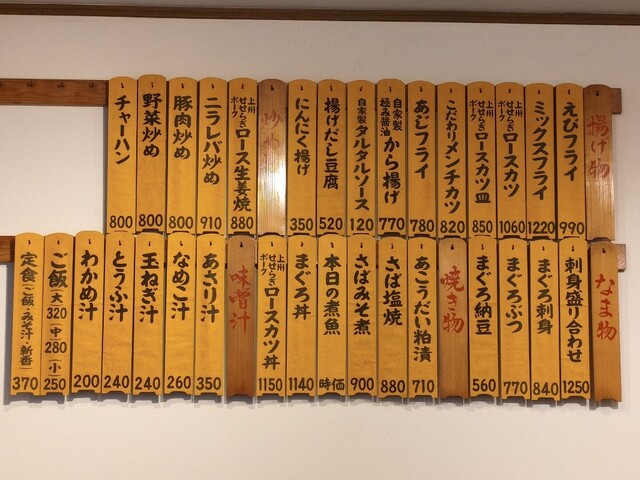 揚げ物
えびフライ 990
ミックスフライ 1220
上州せせらぎポーク ロースカツ 1060
上州せせらぎポーク ロースカツ皿 850
こだわりメンチカツ 820
あじフライ 780
自家製極み醤油 から揚げ 770
自家製 タルタルソース 120
揚げだし豆腐 520
にんにく揚げ 350
炒め物
上州せせらぎポーク ロース生姜焼 880
ニラレバ炒め 910
豚肉炒め 800
野菜炒め 800
チャーハン 800
なま物
刺身盛り合わせ 1250
まぐろ刺身 840
まぐろぶつ 770
まぐろ納豆 560
焼き物
あこうだい粕漬 710
さば塩焼 880
さばみそ煮 900
本日の煮魚 時価
まぐろ丼 1140
上州せせらぎポーク ロースカツ丼 1150
味噌汁
あさり汁 350
なめこ汁 260
玉ねぎ汁 240
とうふ汁 240
わかめ汁 200
ご飯(大)320(中)280(小)250
定食(ご飯・みそ汁・新香) 370